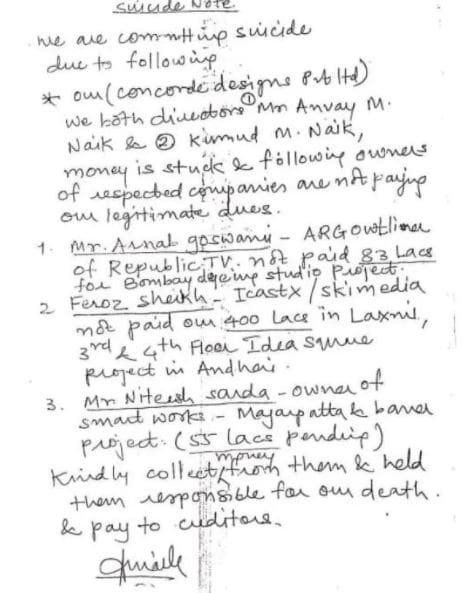 Suicide Note
We are committing suicide
due to following
* our (concorde designs Pvt ltd)
we both directors ① Mr Anvay M.
Naik & ② Kumud M. Naik,
money is stuck & following owners
of respected companies are not paying
our legitimate dues.
1. Mr. Arnab goswami - ARG outlier
of Republic TV. not paid 83 Lacs
for Bombay dyeing studio Project.
2 Feroz sheikh - IcastX / skimedia
not paid our 400 Lacs in Laxmi,
3rd & 4th Floor Idea square
project in Andheri.
3. Mr Niteesh sarda - owner of
smart works - Magarpatta & baner
project. (55 lacs pending)
Kindly collect money from them & held
them responsible for our death.
& pay to creditors.